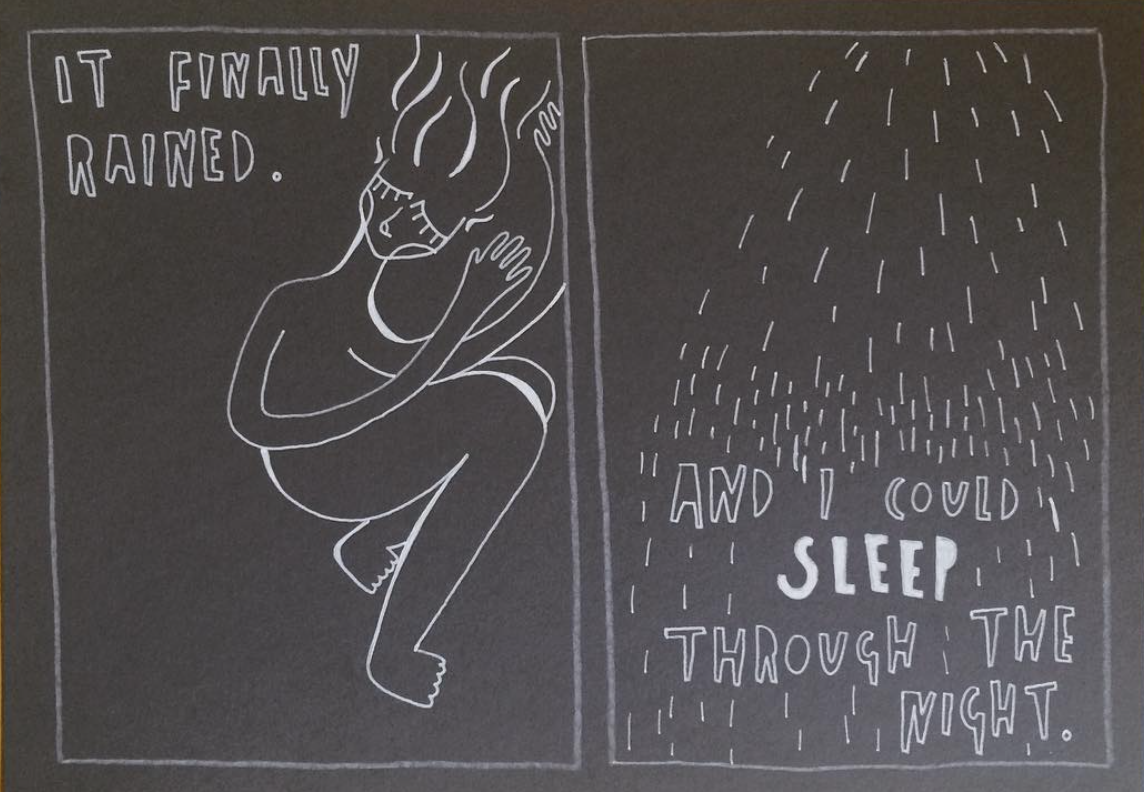 IT FINALLY
RAINED.
AND I COULD
SLEEP
THROUGH THE
NIGHT.